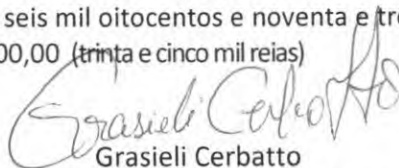 seis mil oitocentos e noventa e tr
00,00 (trinta e cinco mil reias)
Grasieli Cerbatto
Grasieli Cerbatto